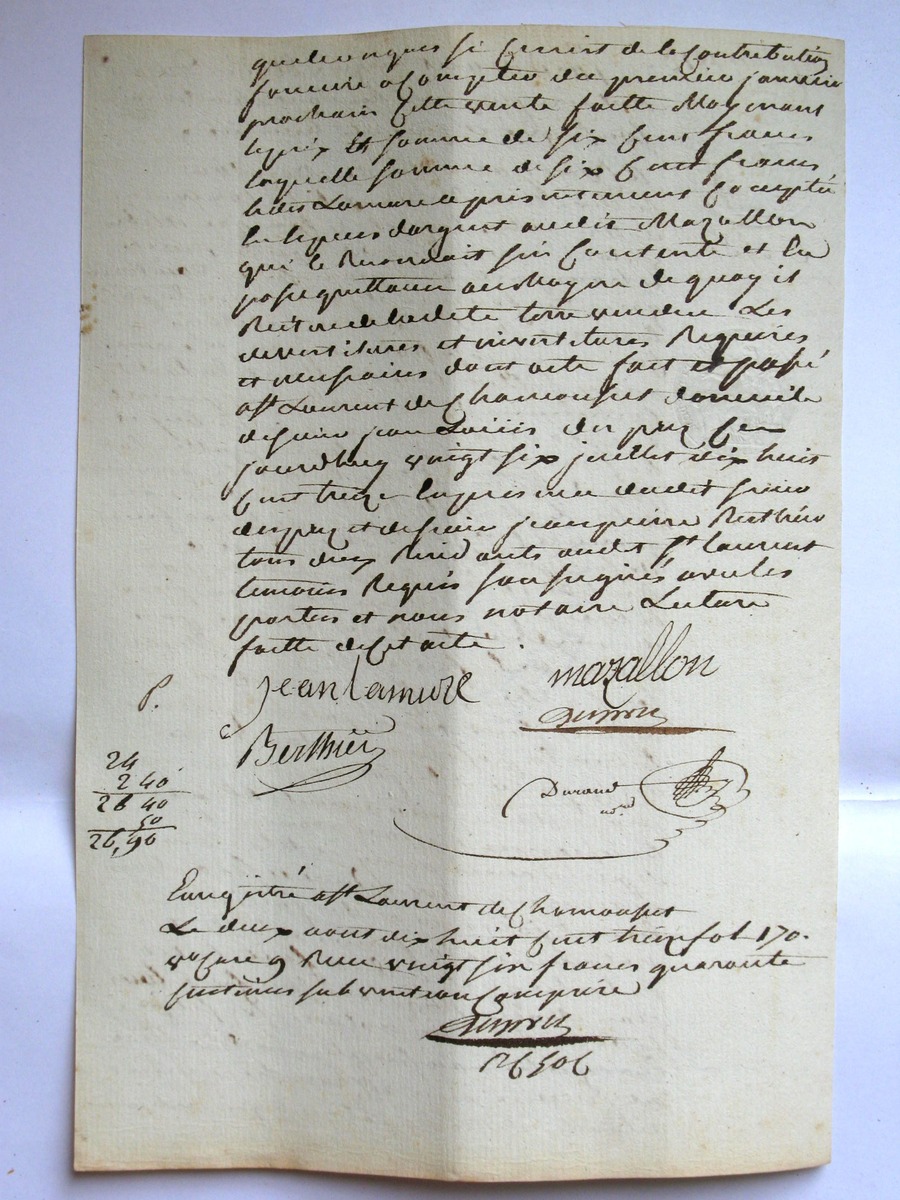 quelconques si cenist de la Contribution
fonciere a Compter du premier janvier
prochain Cette vente faitte Moyenant
leprix Et somme de six Cent francs
laquelle somme de six Cent francs
ledit Lamure a presentement Compté
En Especes dargent audit Mazallon
qui le Reconnait sen Contente et En
passe quittance au Moyen de quoy il
de ladete terre vendue Les
devestitures et investitures Requises
et necessaires dont acte fait et passé
a st Laurent de Chamousset domicile
de sieur jean Loüis du puy Ce
jourdhuy vingt six juillet dix huit
Cent treize En presence dudit sieur
dupuy et de sieur jean pierre Berthier
tous deux Residants audit st laurent
temoins Requis soussignés avec les
parties et nous notaire Lecture
faitte de Cet acte .
jean lamure mazallon
Berthier
Durand
24
2 40
26 40
50
26,90
Enregistré a st Laurent de Chamousset
Le deux aout dix huit Cent treize fol 170.
vo Case 9 Recu vingt six francs quarante
Centimes subvention Comprise